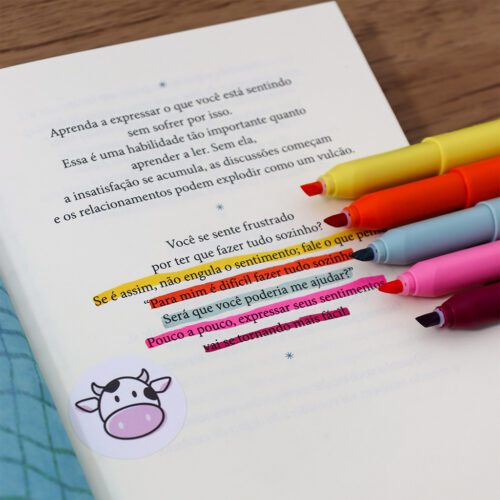 *
Aprenda a expressar o que você está sentindo
sem sofrer por isso.
Essa é uma habilidade tão importante quanto
aprender a ler. Sem ela,
a insatisfação se acumula, as discussões começam
e os relacionamentos podem explodir como um vulcão.
*
Você se sente frustrado
por ter que fazer tudo sozinho?
Se é assim, não engula o sentimento; fale o que
“Para mim é difícil fazer tudo sozinho
Será que você poderia me ajudar?”
Pouco a pouco, expressar seus sentimentos
vai se tornando mais fácil.
*